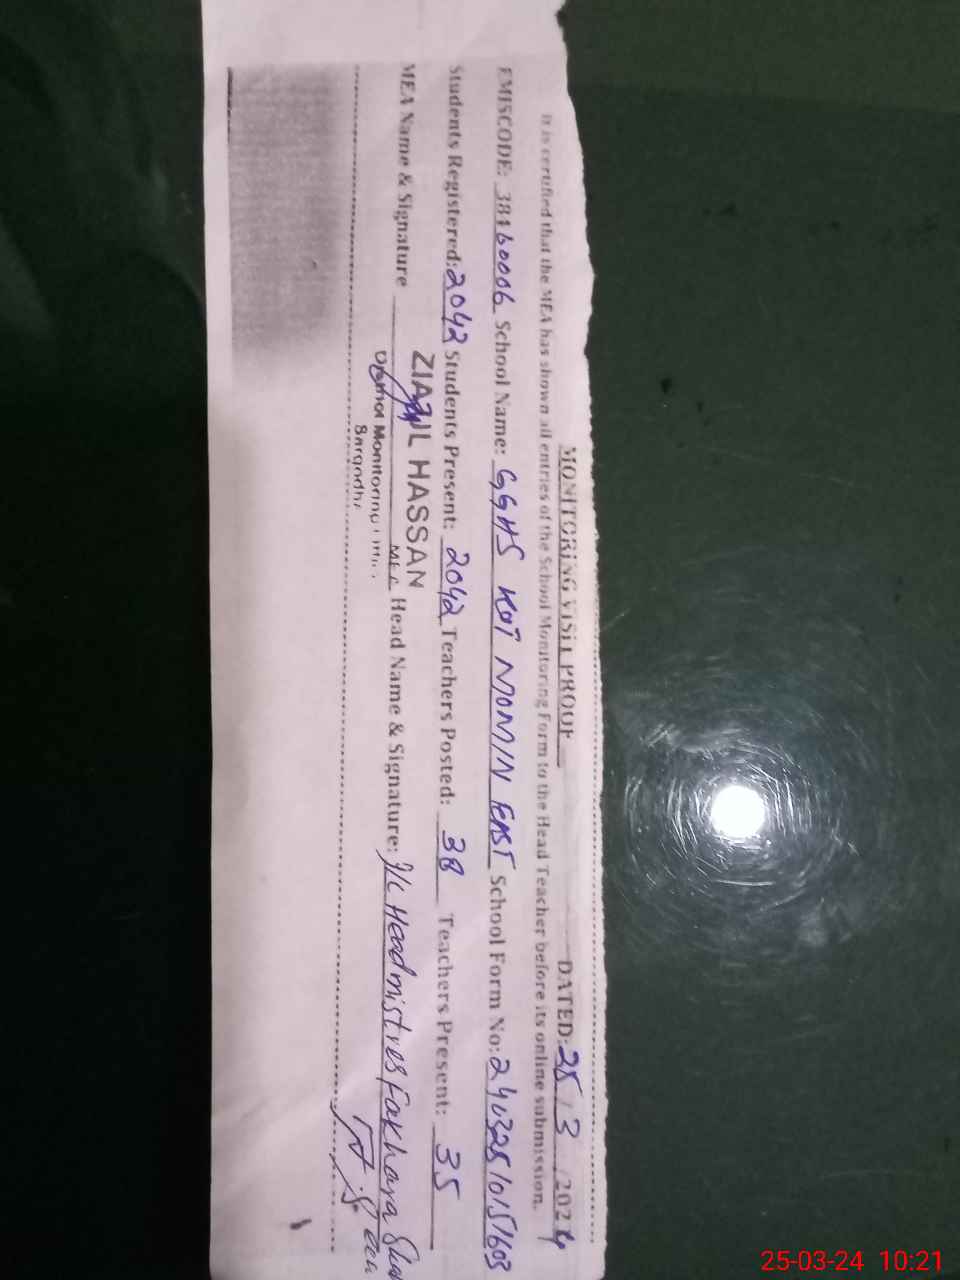 MONITORING VISIT PROOF DATED: 25 / 3 / 2024
It is certified that the MEA has shown all entries of the School Monitoring Form to the Head Teacher before its online submission.
EMISCODE: 38460006 School Name: GGHS KOT MOMIN EAST School Form No: 240325101571603
Students Registered: 2042 Students Present: 2042 Teachers Posted: 38 Teachers Present: 35
MEA Name & Signature Head Name & Signature: I/C Headmistres Fakhara
ZIA UL HASSAN
District Monitoring
25-03-24 10:21